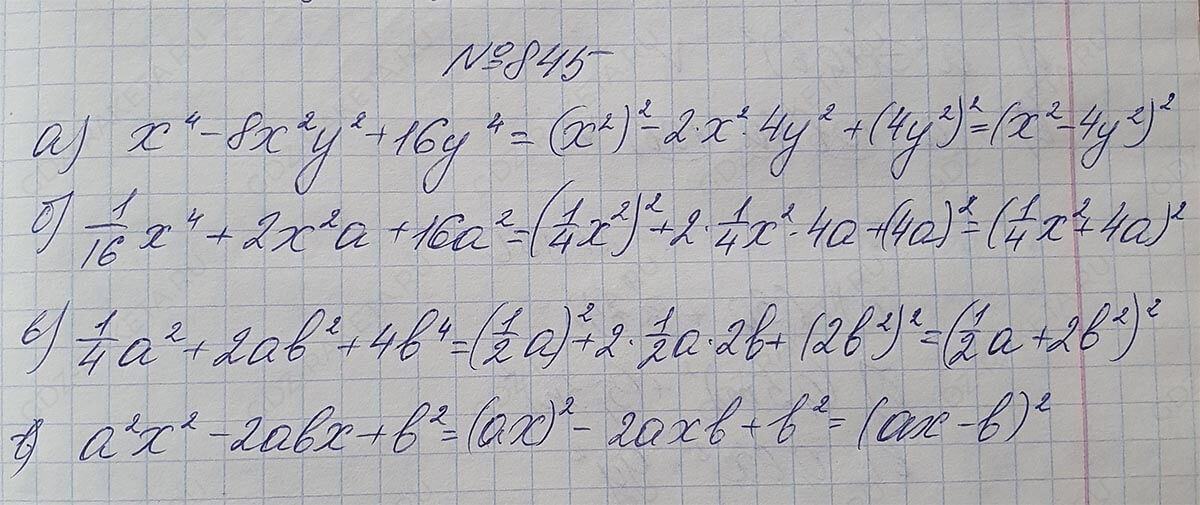 №845
а) x⁴ - 8x²y² + 16y⁴ = (x²)² - 2·x²·4y² + (4y²)² = (x² - 4y²)²
б) 1/16 x⁴ + 2x²a + 16a² = (1/4 x²)² + 2·1/4 x²·4a + (4a)² = (1/4 x² + 4a)²
в) 1/4 a² + 2ab² + 4b⁴ = (1/2 a)² + 2·1/2 a·2b + (2b²)² = (1/2 a + 2b²)²
г) a²x² - 2abx + b² = (ax)² - 2axb + b² = (ax - b)²